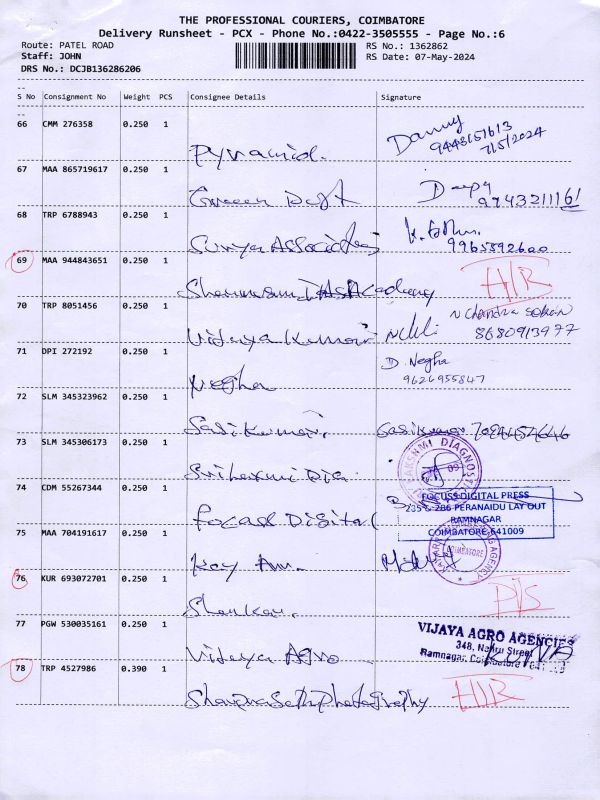 THE PROFESSIONAL COURIERS, COIMBATORE
Delivery Runsheet - PCX - Phone No.:0422-3505555 - Page No.:6
Route: PATEL ROAD RS No.: 1362862
Staff: JOHN RS Date: 07-May-2024
DRS No.: DCJB136286206
S No Consignment No Weight PCS Consignee Details Signature
66 CMM 276358 0.250 1
Pyramid. Danny
9443151613
7/5/2024
67 MAA 865719617 0.250 1
Deepy
9743211161
68 TRP 6788943 0.250 1
Surya Associates
9965592600
69 MAA 944843651 0.250 1
H/R
70 TRP 8051456 0.250 1
Vijaya Kumar N Chandra
8680913977
71 DPI 272192 0.250 1
Negha D. Negha
9626955847
72 SLM 345323962 0.250 1
Sasikumar. Sasikumar
73 SLM 345306173 0.250 1
Srilaxmi Dia LAKSHMI DIAGNOSTIC
74 CDM 55267344 0.250 1
Focus Digital FOCUSS DIGITAL PRESS
285 & 286 PERANAIDU LAY OUT
RAMNAGAR
COIMBATORE-641009
75 MAA 704191617 0.250 1
Kay Am. COIMBATORE
76 KUR 693072701 0.250 1
Shankar. D/S
77 PGW 530035161 0.250 1
Vijaya Agro VIJAYA AGRO AGENCIES
348, Nehru Street
Ramnagar, Coimbatore
78 TRP 4527986 0.390 1
H/R